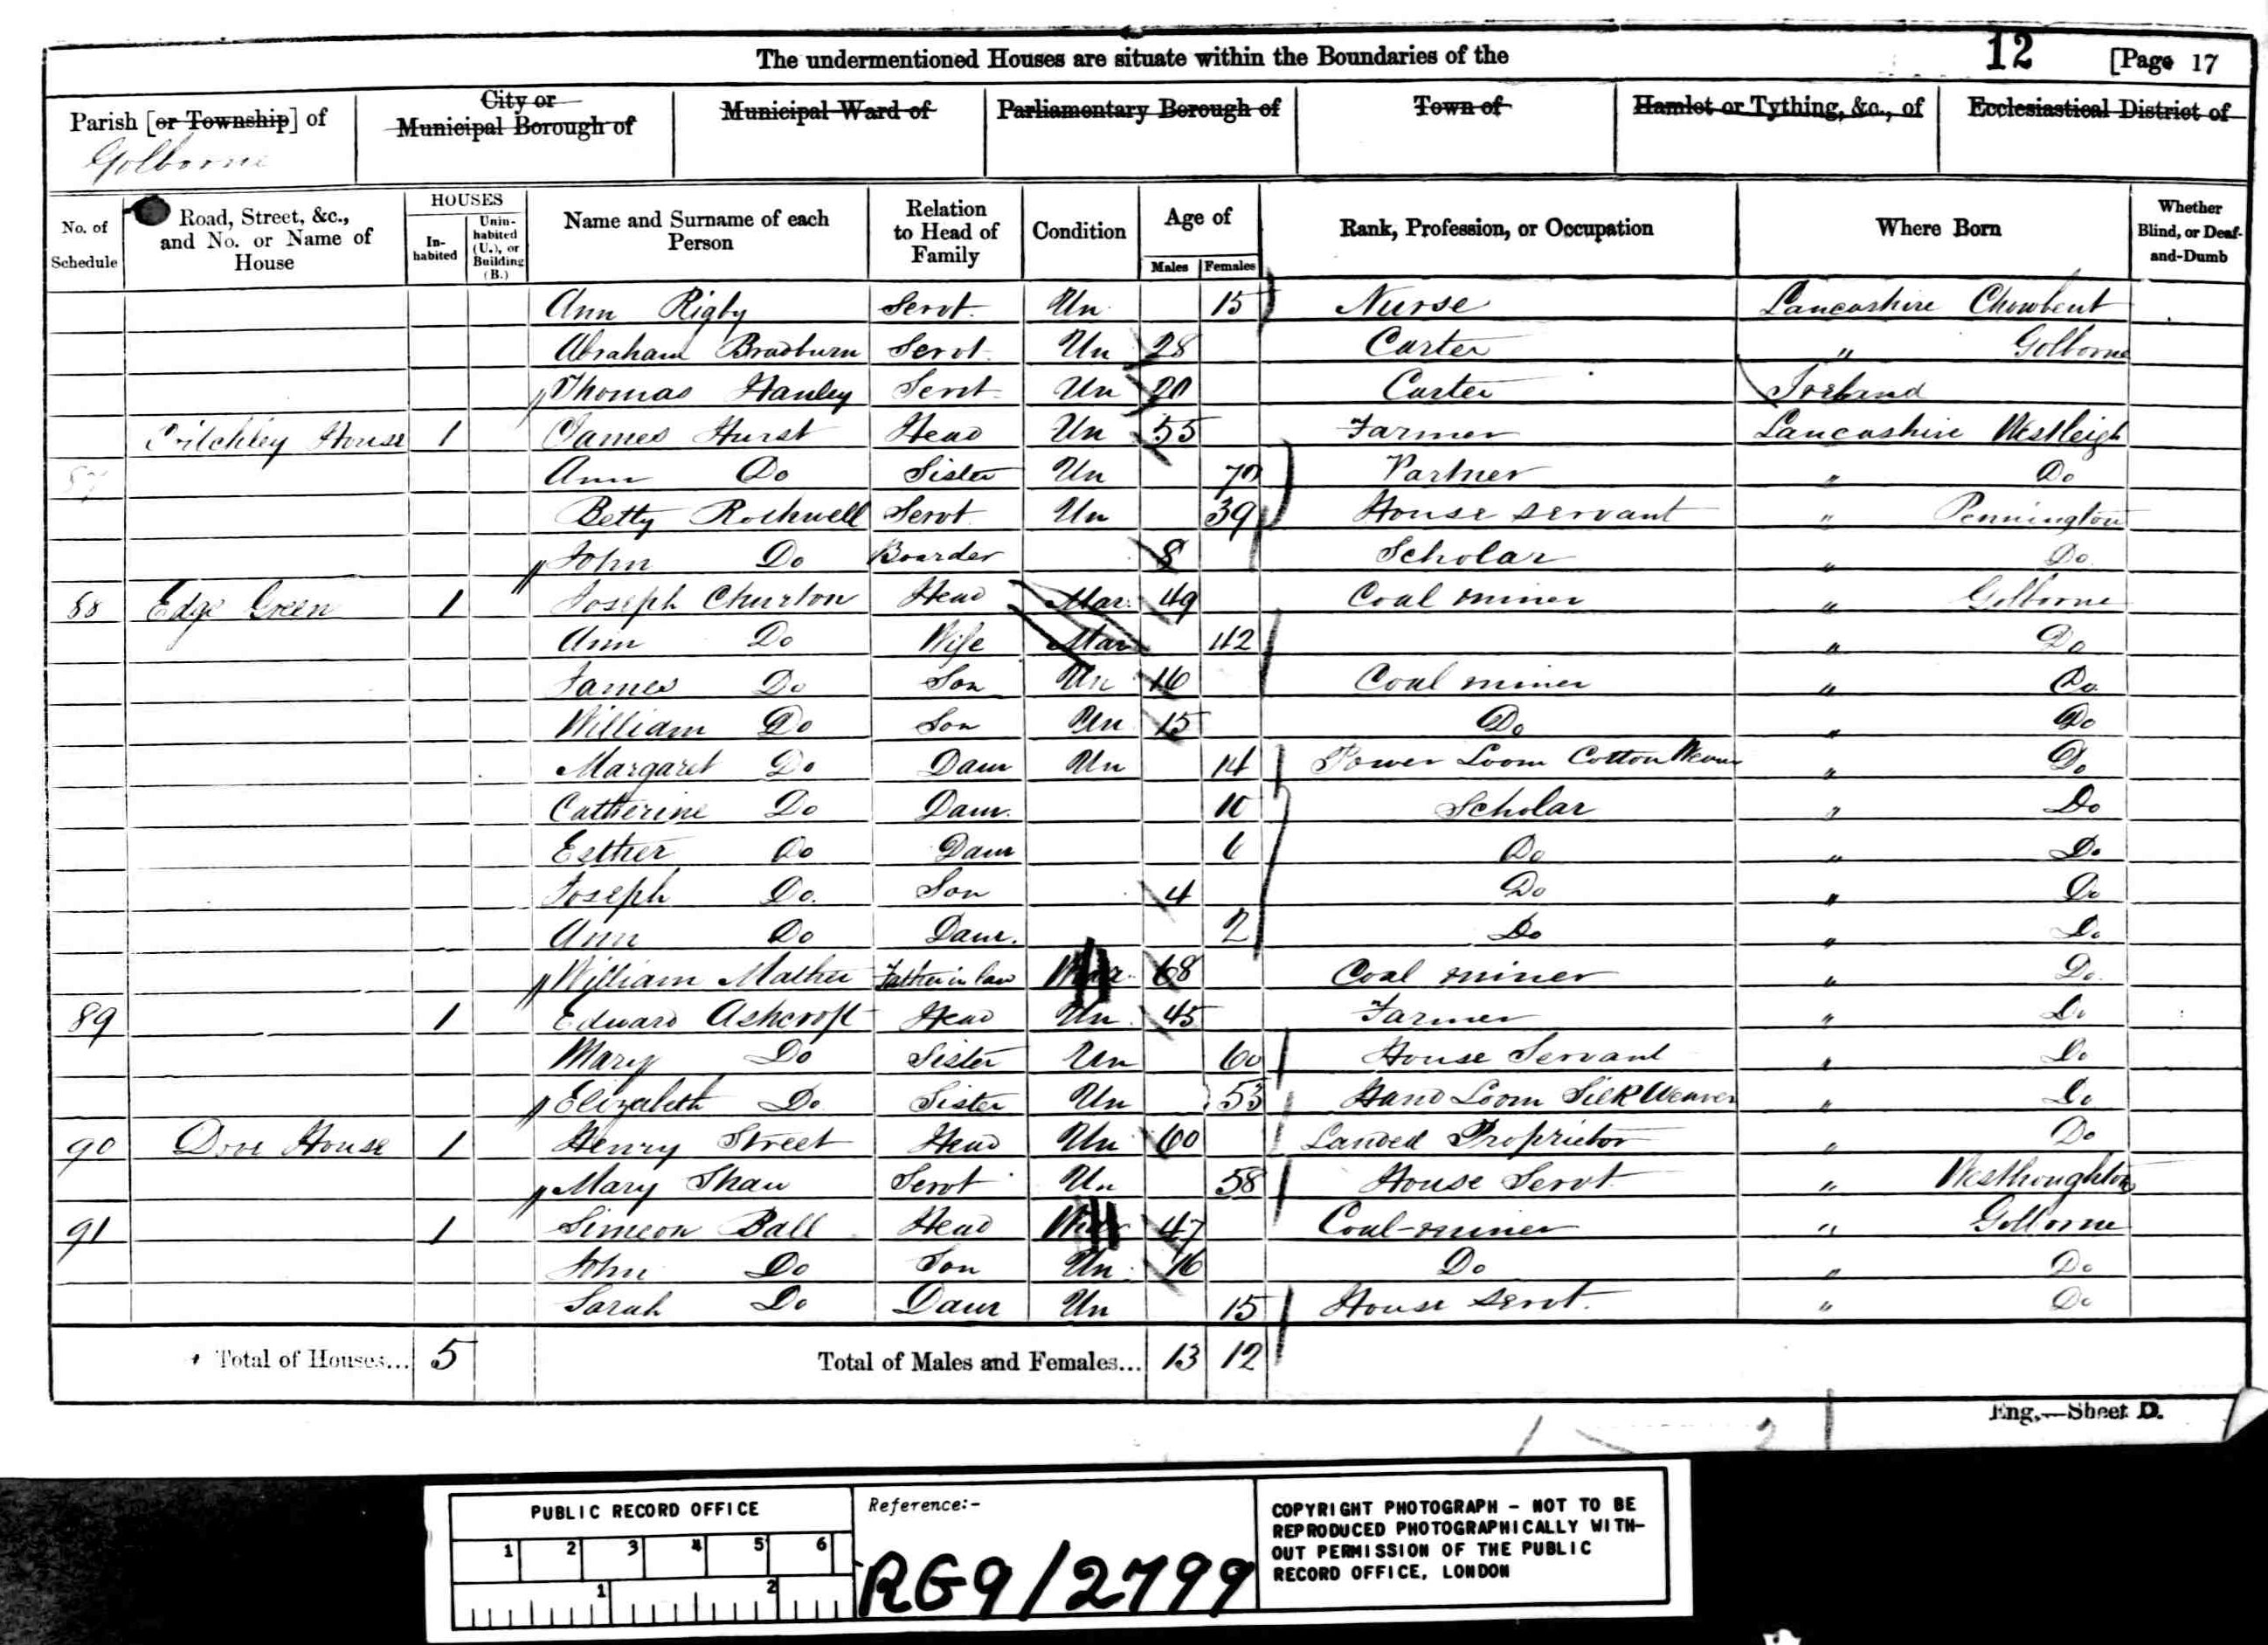 The undermentioned Houses are situate within the Boundaries of the 12 [Page 17
Parish [or Township] of Golborne
City or Municipal Borough of
Municipal Ward of
Parliamentary Borough of
Town of
Hamlet or Tything, &c., of
Ecclesiastical District of
No. of Schedule
Road, Street, &c., and No. or Name of House
HOUSES
In-habited
Unin-habited (U.), or Building (B.)
Name and Surname of each Person
Relation to Head of Family
Condition
Age of
Males Females
Rank, Profession, or Occupation
Where Born
Whether Blind, or Deaf-and-Dumb
Ann Rigby Servt. Un 15 Nurse Lancashire Chowbent
Abraham Bradburn Servt. Un 28 Carter " Golborne
Thomas Hanley Servt Un 20 Carter Ireland
Critchley House 1 James Hurst Head Un 55 Farmer Lancashire Westleigh
87 Ann Do Sister Un 70 Partner " Do
Betty Rothwell Servt Un 39 House servant " Pennington
John Do Boarder 8 Scholar " Do
88 Edge Green 1 Joseph Churton Head Mar. 49 Coal miner " Golborne
Ann Do Wife Mar 42 " Do
James Do Son Un 16 Coal miner " Do
William Do Son Un 15 Do " Do
Margaret Do Daur Un 14 Power Loom Cotton Weaver " Do
Catherine Do Daur. 10 Scholar " Do
Esther Do Daur 6 Do " Do
Joseph Do. Son 4 Do " Do
Ann Do Daur. 2 Do " Do
William Mather Father in law 68 Coal miner " Do
89 1 Edward Ashcroft Head Un 45 Farmer " Do
Mary Do Sister Un 60 House Servant " Do
Elizabeth Do Sister Un 53 Hand Loom Silk Weaver " Do
90 Dove House 1 Henry Street Head Un 60 Landed Proprietor " Do
Mary Shaw Servt Un 58 House Servt " Westhoughton
91 1 Simeon Ball Head 47 Coal-miner " Golborne
John Do Son Un 16 Do " Do
Sarah Do Daur Un 15 House Servt. " Do
Total of Houses... 5 Total of Males and Females... 13 12
Eng.—Sheet D.
PUBLIC RECORD OFFICE
1 2 3 4 5 6
1 2
Reference:-
RG9/2799
COPYRIGHT PHOTOGRAPH - NOT TO BE
REPRODUCED PHOTOGRAPHICALLY WITH-
OUT PERMISSION OF THE PUBLIC
RECORD OFFICE, LONDON